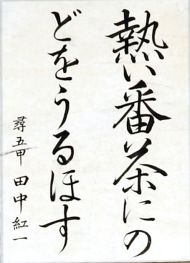 熱い番茶にの
どをうるほす
尋五甲 田中紅一